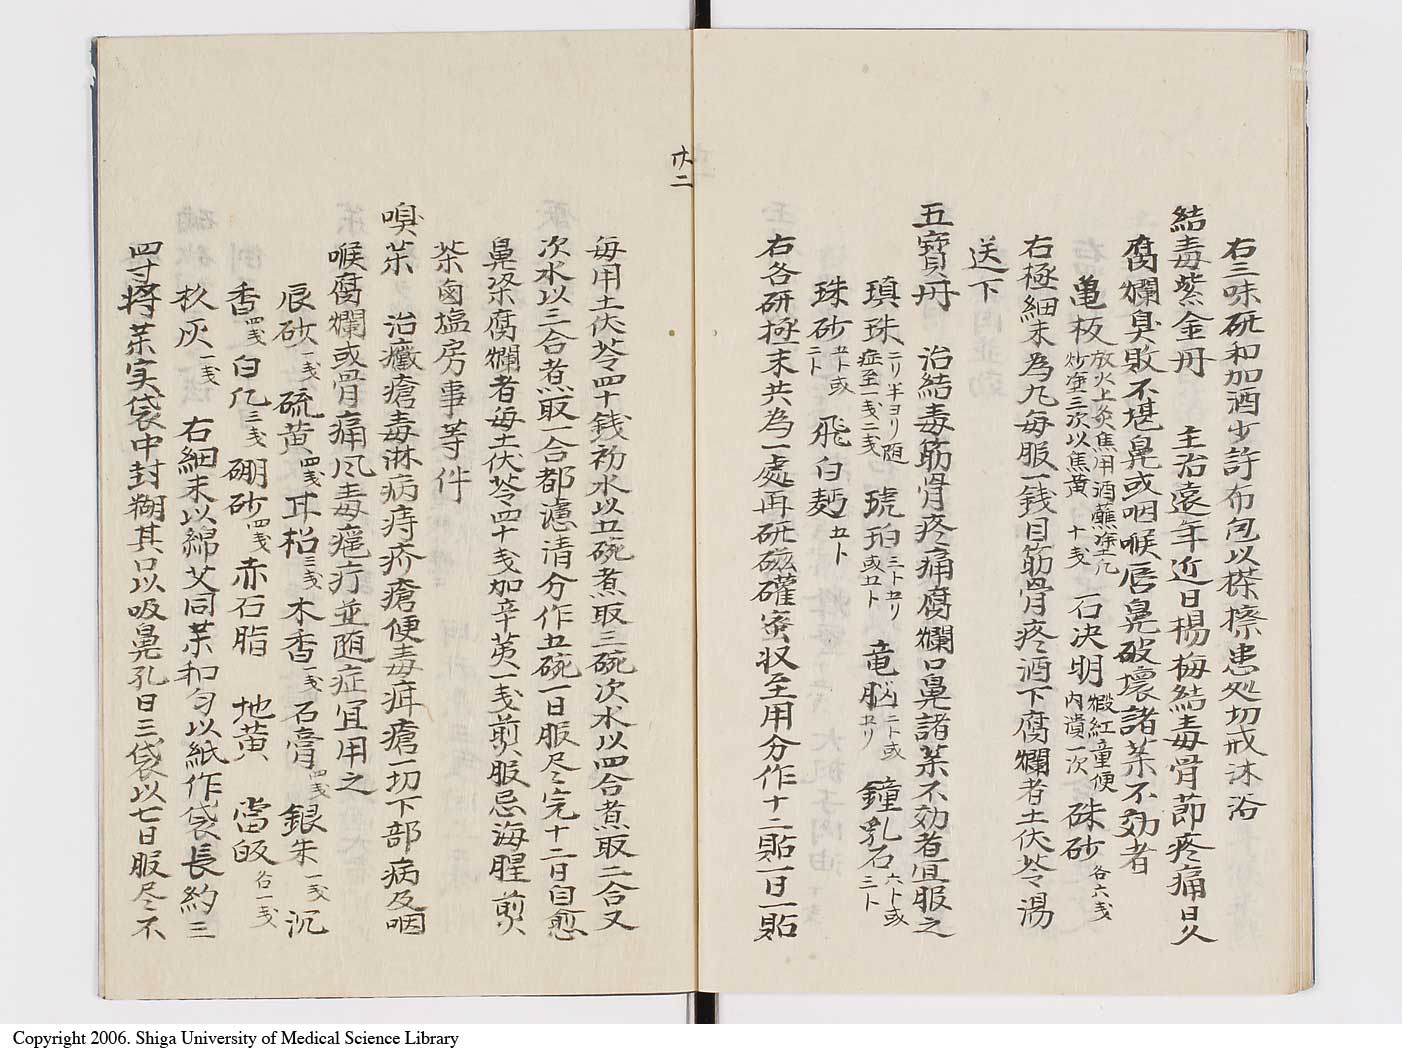 右三味研和加酒少許布包以搽擦患処切戒沐浴
結毒紫金丹　主治遠年近日楊梅結毒骨節疼痛日久
腐爛臭敗不堪鼻或咽喉唇鼻破壊諸茶不効者
亀板放火上炙焦用酒蘸塗三次以焦黄　十戔　石决明煅紅童便内瀆一次　硃砂各六戔
右極細末為丸毎服一銭目筋骨疼酒下腐爛者土伏苓湯
送下
五寶丹　治結毒筋骨疼痛腐爛口鼻諸茶不効者宜服之
瑱珠二リ半ヨリ随症至一戔二戔　琥珀三卜五リ或五卜　竜脳二卜或五リ　鐘乳石六卜或三卜
珠砂五卜或二卜　飛白麪五卜
右各研極末共為一處再研磁確蜜収至用分作十二貼一日一貼
廿二
毎用土伏苓四十銭初水以五碗煮取三碗次水以四合煮取二合又
次水以三合煮取一合都濾清分作五碗一日服尽完十二日自愈
鼻梁腐爛者毎土伏苓四十戔加辛荑一戔煎服忌海腥煎
茶鹵塩房事等件
嗅茶　治癥瘡毒淋病痔疥瘡便毒疳瘡一切下部病及咽
喉腐爛或骨痛風毒瘟疔並随症冝用之
辰砂一戔　硫黄四戔　耳　三戔　木香一戔　石膏四戔　銀朱一戔　沉
香四戔　白　三戔　硼砂四戔　赤石脂　地黄　當皈各一戔
杉灰一戔　右細末以綿艾同茶和匀以紙作袋長約三
四寸将茶実袋中封糊其口以吸鼻孔日三袋以七日服尽不
Copyright 2006. Shiga University of Medical Science Library